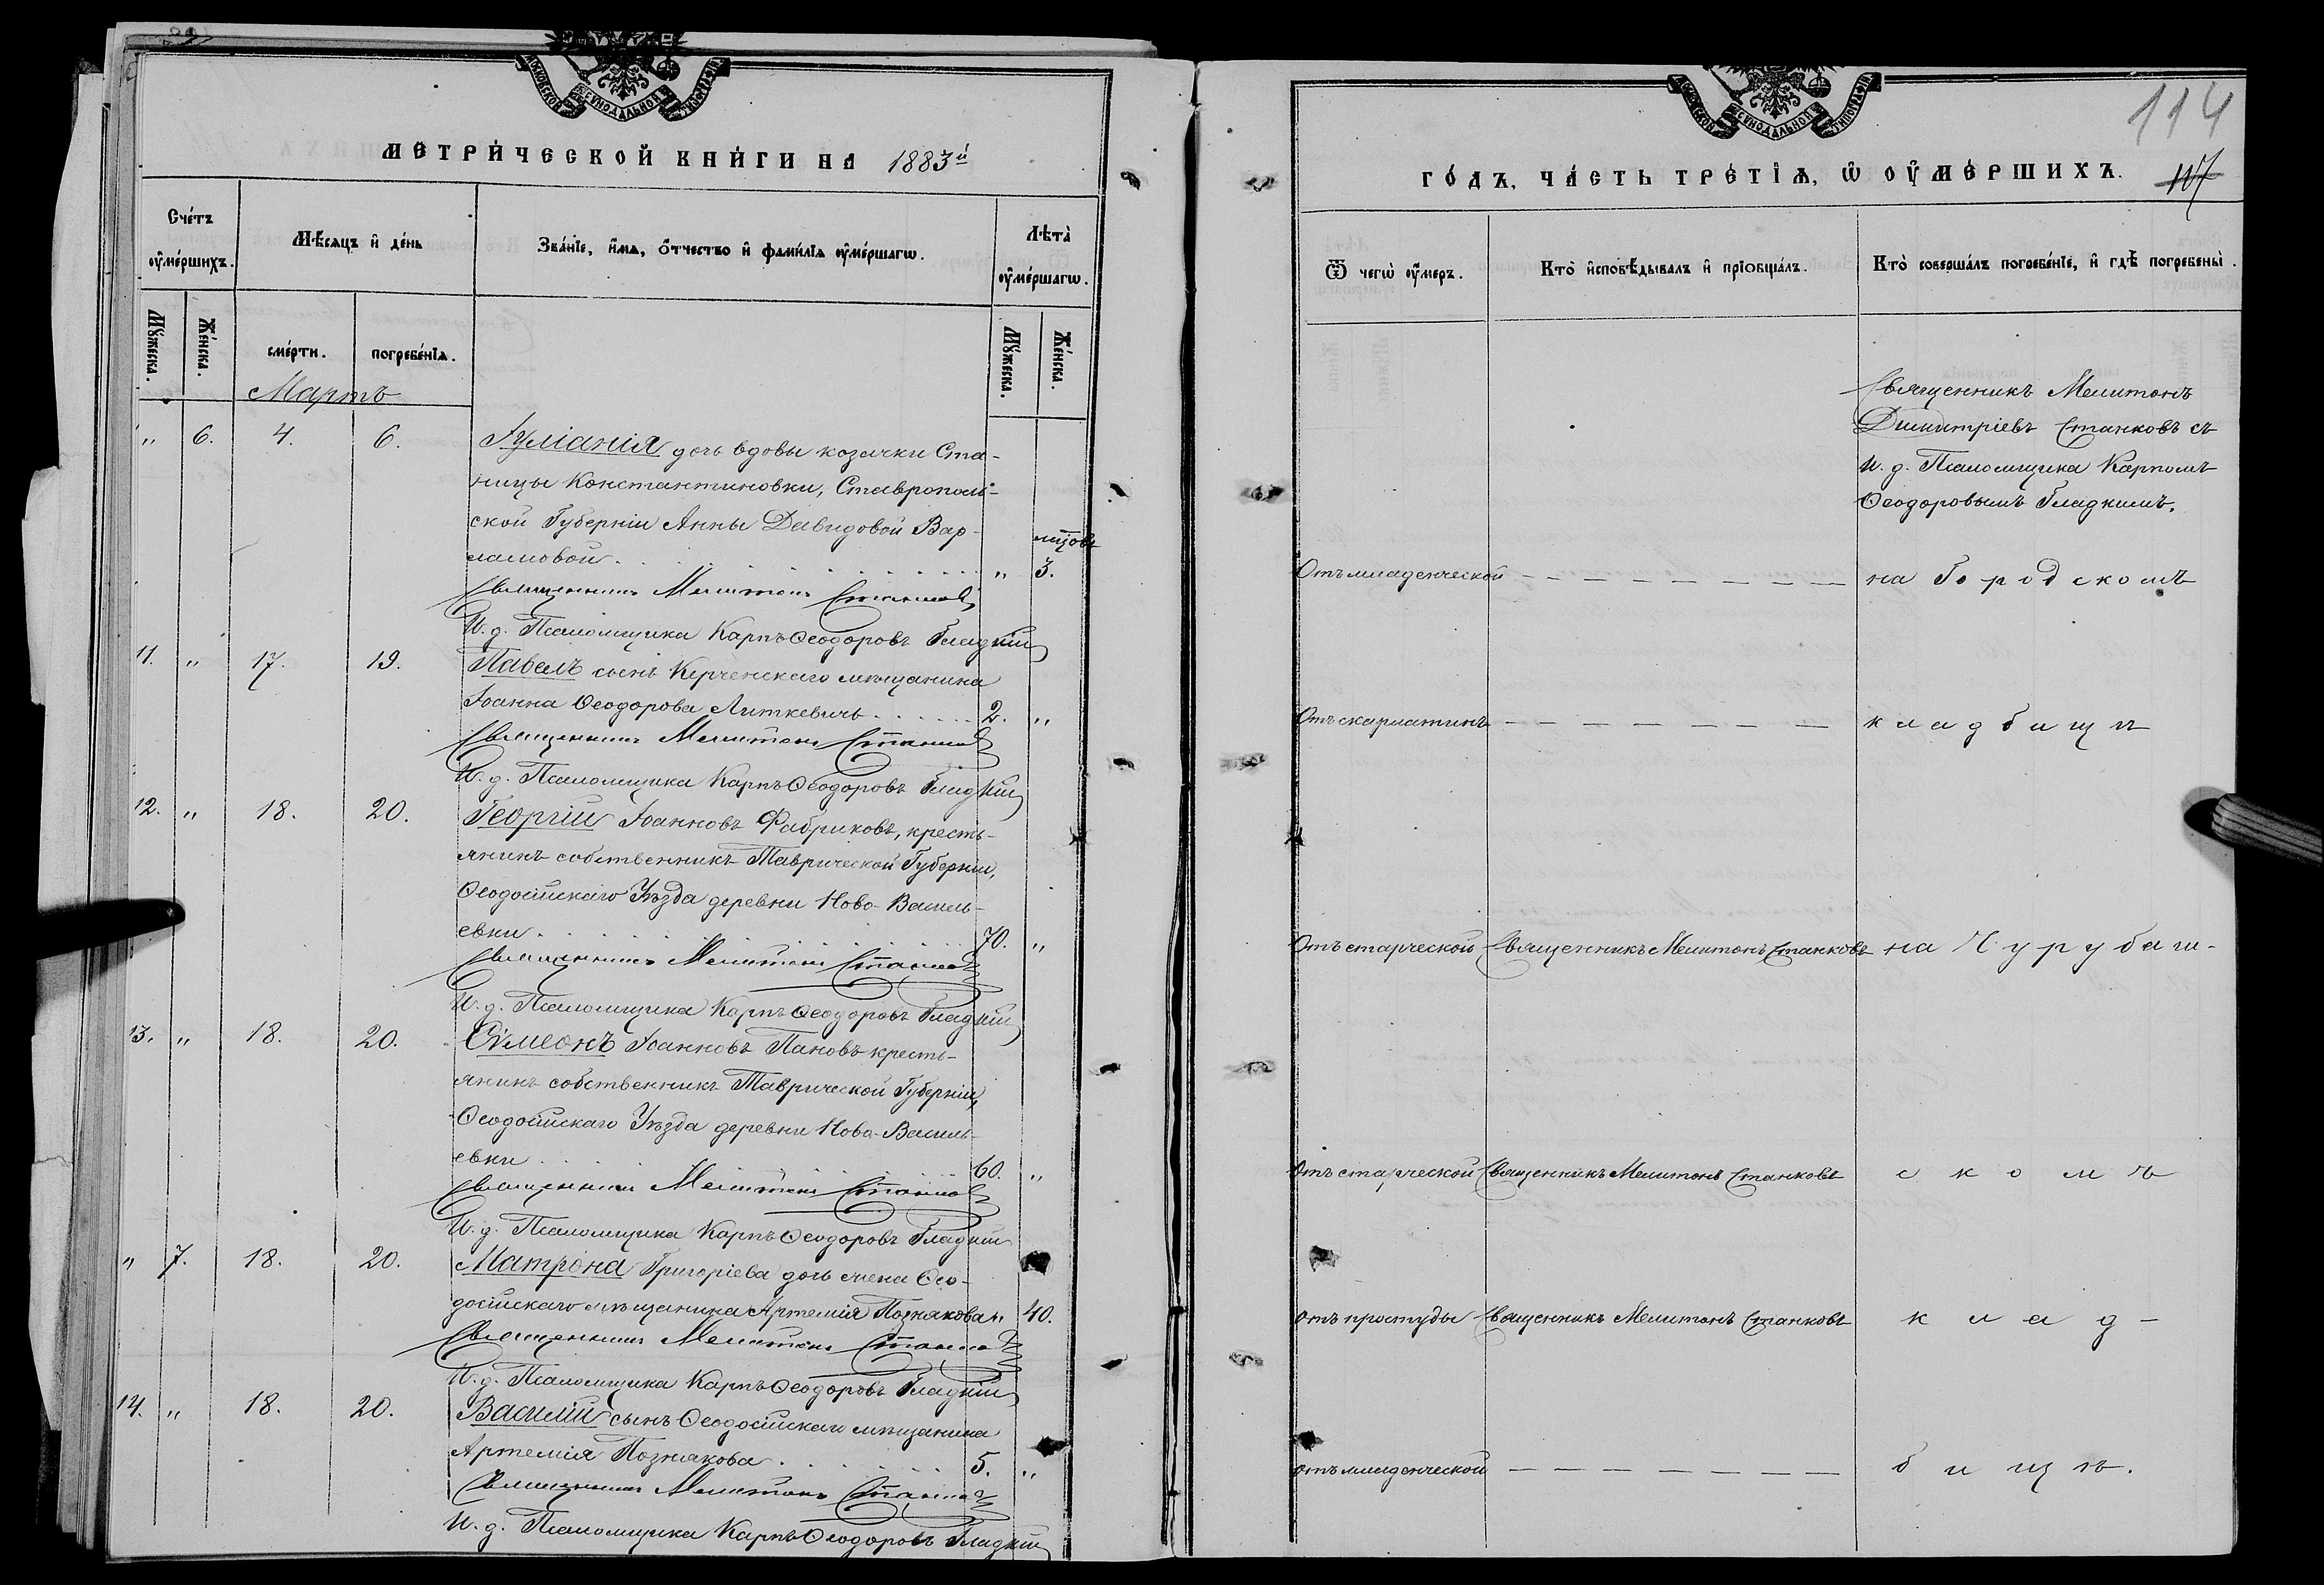 МОСКОВСКОЙ СУНОДАЛЬНОЙ ТИПОГРАФІИ
МЕТРИ́ЧЕСКОЙ КНИ́ГИ НА 1883й
Сче́тъ оу҆ме́ршихъ.
Мѣ́сяцъ и҆ де́нь
Зва́нїе, и҆́мѧ, ѻ҆́тчество и҆ фами́лїѧ оу҆ме́ршагѡ.
Лѣта̀ оу҆ме́ршагѡ.
Мꙋ́жеска.
Же́нска.
сме́рти.
погребе́нїѧ.
Мꙋ́жеска.
Же́нска.
Мартъ
„ 6. 4. 6. Іуліанія дочь вдовы козачки Ста-
ницы Константиновки, Ставрополь-
ской Губерніи Анны Давидовой Вар-
ламовой . . . „ мцовъ 3.
Священникъ Мелитонъ Станковъ
И. д. Псаломщика Карпъ Ѳеодоровъ Гладкій
11. „ 17. 19. Павелъ сынъ Керченскаго мѣщанина
Іоанна Ѳеодорова Литкевичъ . . . 2. „
Священникъ Мелитонъ Станковъ
И. д. Псаломщика Карпъ Ѳеодоровъ Гладкій
12. „ 18. 20. Георгій Іоанновъ Фабриковъ, кресть-
янинъ собственникъ Таврической Губерніи,
Ѳеодосійскаго Уѣзда деревни Ново-Василь-
евки . . . 70. „
Священникъ Мелитонъ Станковъ
И. д. Псаломщика Карпъ Ѳеодоровъ Гладкій
13. „ 18. 20. Сѵмеонъ Іоанновъ Пановъ кресть-
янинъ собственникъ Таврической Губерніи,
Ѳеодосійскаго Уѣзда деревни Ново-Василь-
евки . . . 60. „
Священникъ Мелитонъ Станковъ
И. д. Псаломщика Карпъ Ѳеодоровъ Гладкій
„ 7. 18. 20. Матрона Григоріева дочь жена Ѳео-
досійскаго мѣщанина Артемія Познякова „ 40.
Священникъ Мелитонъ Станковъ
И. д. Псаломщика Карпъ Ѳеодоровъ Гладкій
14. „ 18. 20. Василій сынъ Ѳеодосійскаго мѣщанина
Артемія Познякова . . . 5. „
Священникъ Мелитонъ Станковъ
И. д. Псаломщика Карпъ Ѳеодоровъ Гладкій
МОСКОВСКОЙ СУНОДАЛЬНОЙ ТИПОГРАФІИ
114
ГО́ДЪ, ЧА́СТЬ ТРЕ́ТЇѦ, Ѡ҆ ОУ҆МЕ́РШИХЪ.
Ѿ чегѡ̀ оу҆́меръ.
Кто̀ и҆сповѣ́дывалъ и҆ прїѻбща́лъ.
Кто̀ соверша́лъ погребе́нїе, и҆ гдѣ̀ погребены̀.
Священникъ Мелитонъ
Димитріевъ Станковъ съ
и. д. Псаломщика Карпомъ
Ѳеодоровымъ Гладкимъ.
Отъ младенческой — — — на Городскомъ
Отъ скарлатинъ — — — кладбищѣ
Отъ старческой Священникъ Мелитонъ Станковъ на Чурубаш-
Отъ старческой Священникъ Мелитонъ Станковъ скомъ
отъ простуды Священникъ Мелитонъ Станковъ клад-
отъ младенческой — — — бищѣ.